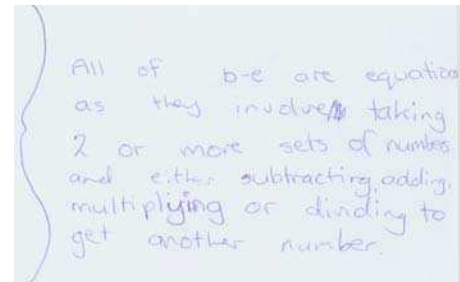 All of b-e are equation
as they involve taking
2 or more sets of numbers
and either subtracting, adding,
multiplying or dividing to
get another number.